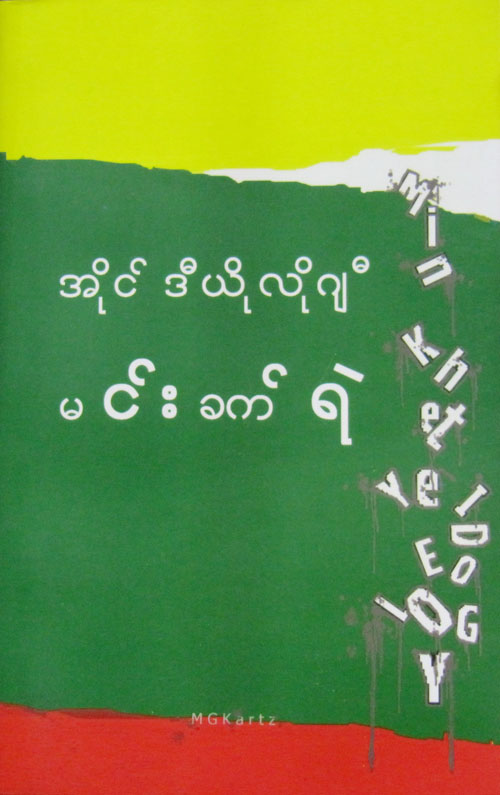 အိုင် ဒီယိုလိုဂျီ
မင်းခက် ရဲ
Min
Khet
Ye
IDEOlOGY
MGKartz